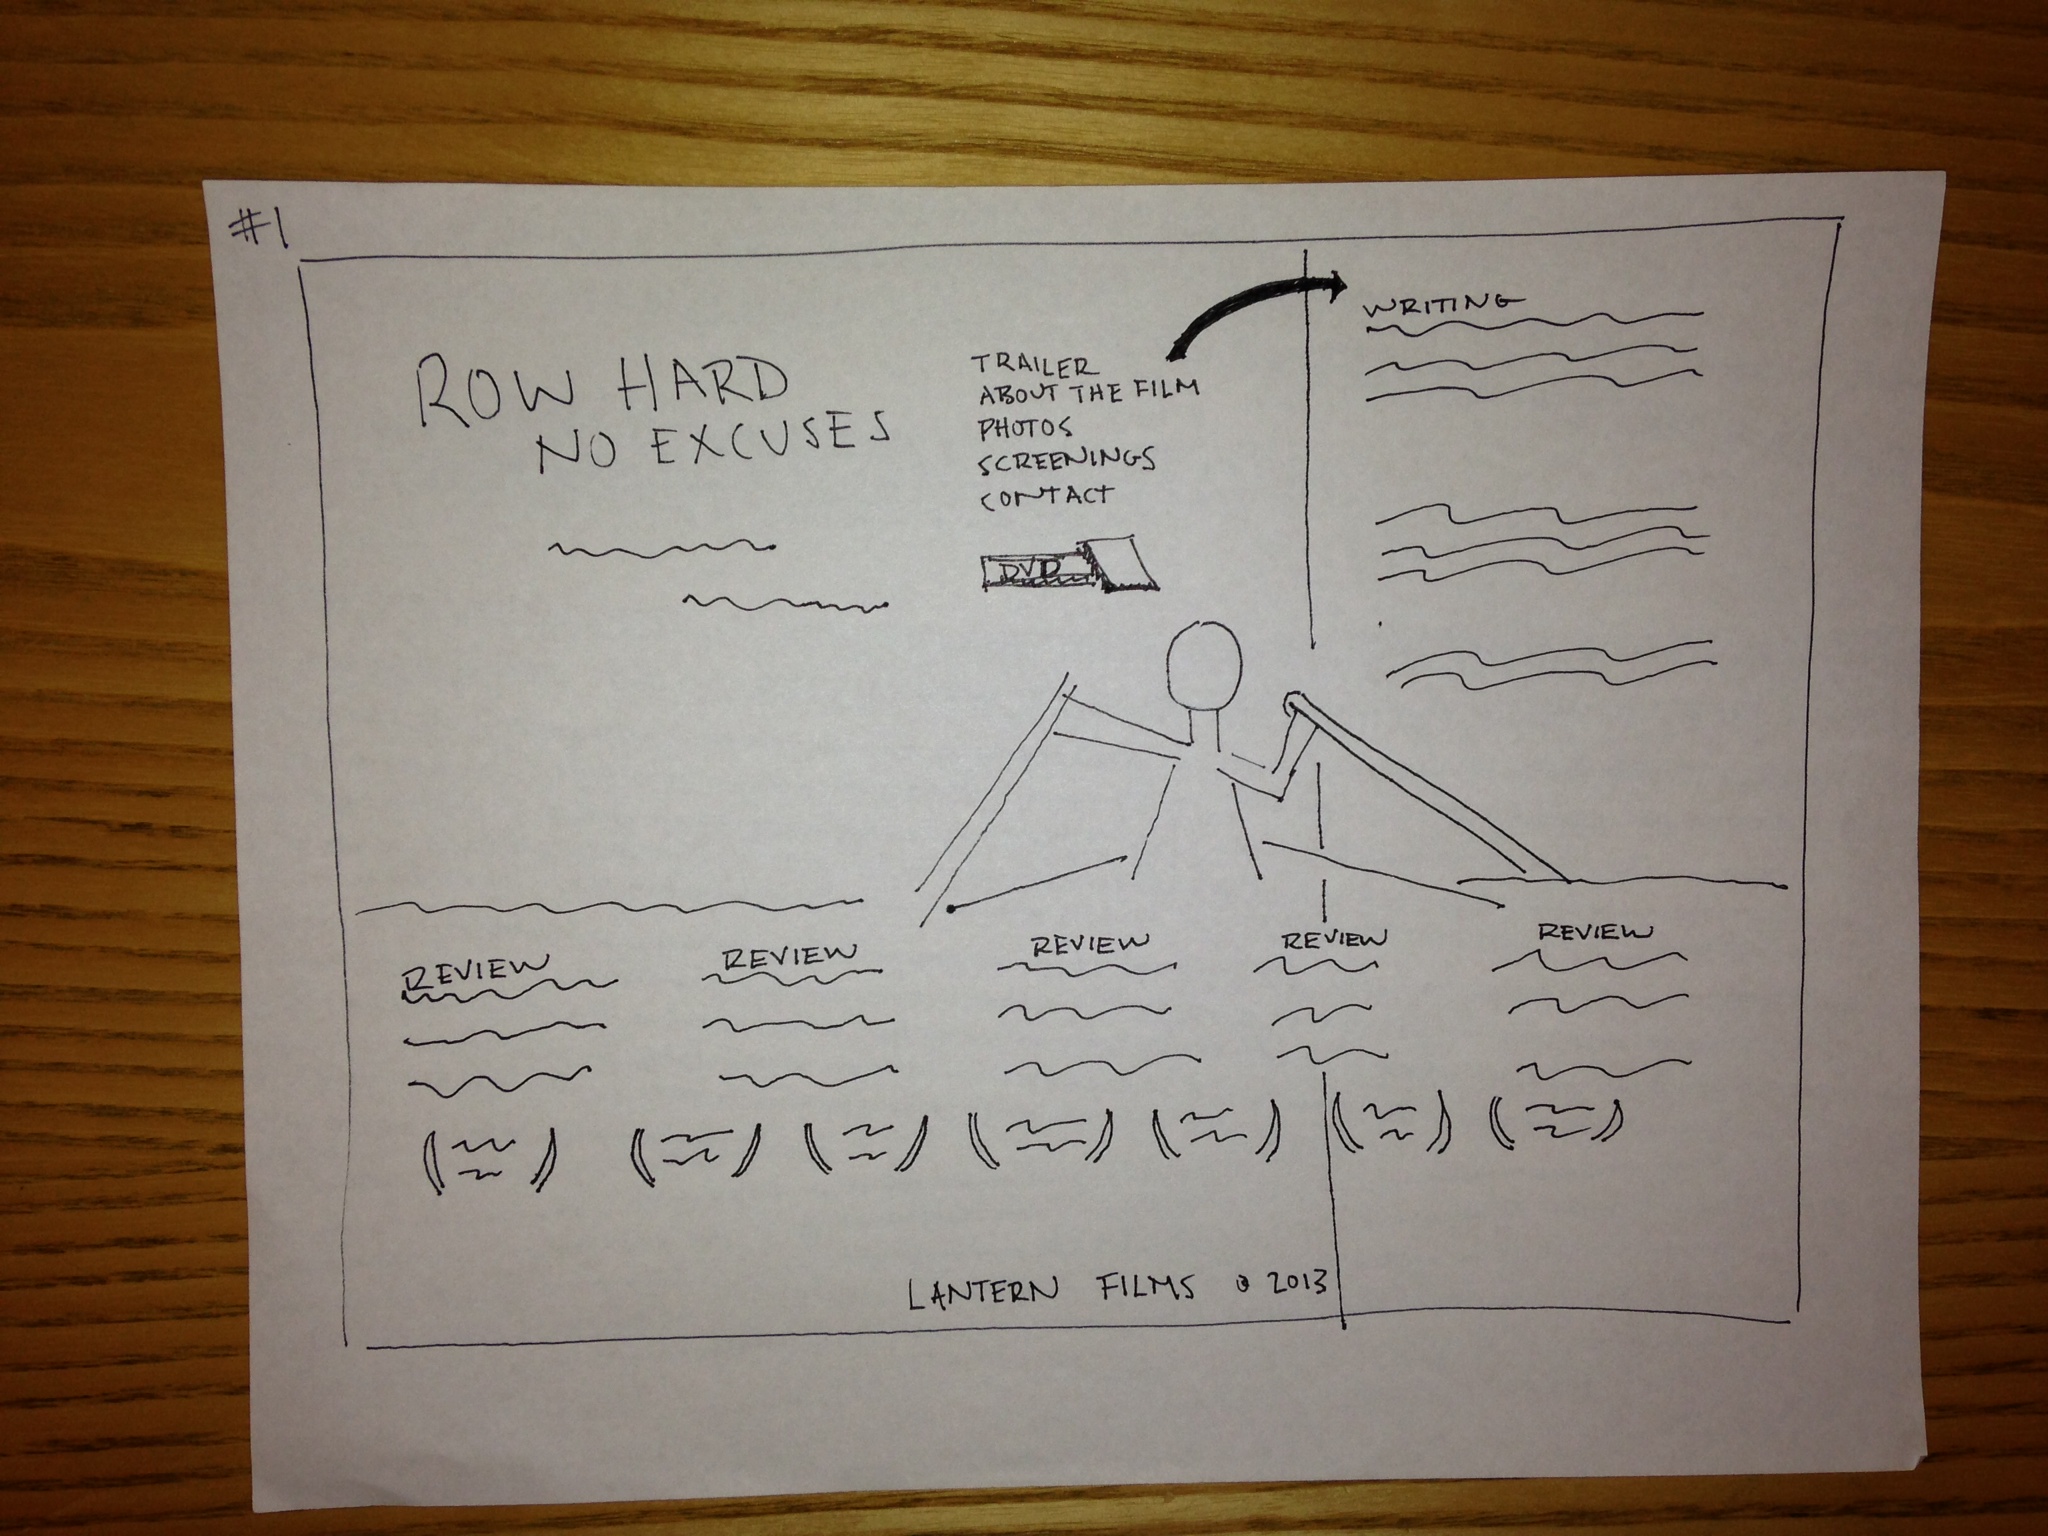 #1
ROW HARD
NO EXCUSES
TRAILER
ABOUT THE FILM
PHOTOS
SCREENINGS
CONTACT
DVD
WRITING
REVIEW
REVIEW
REVIEW
REVIEW
REVIEW
LANTERN FILMS © 2013